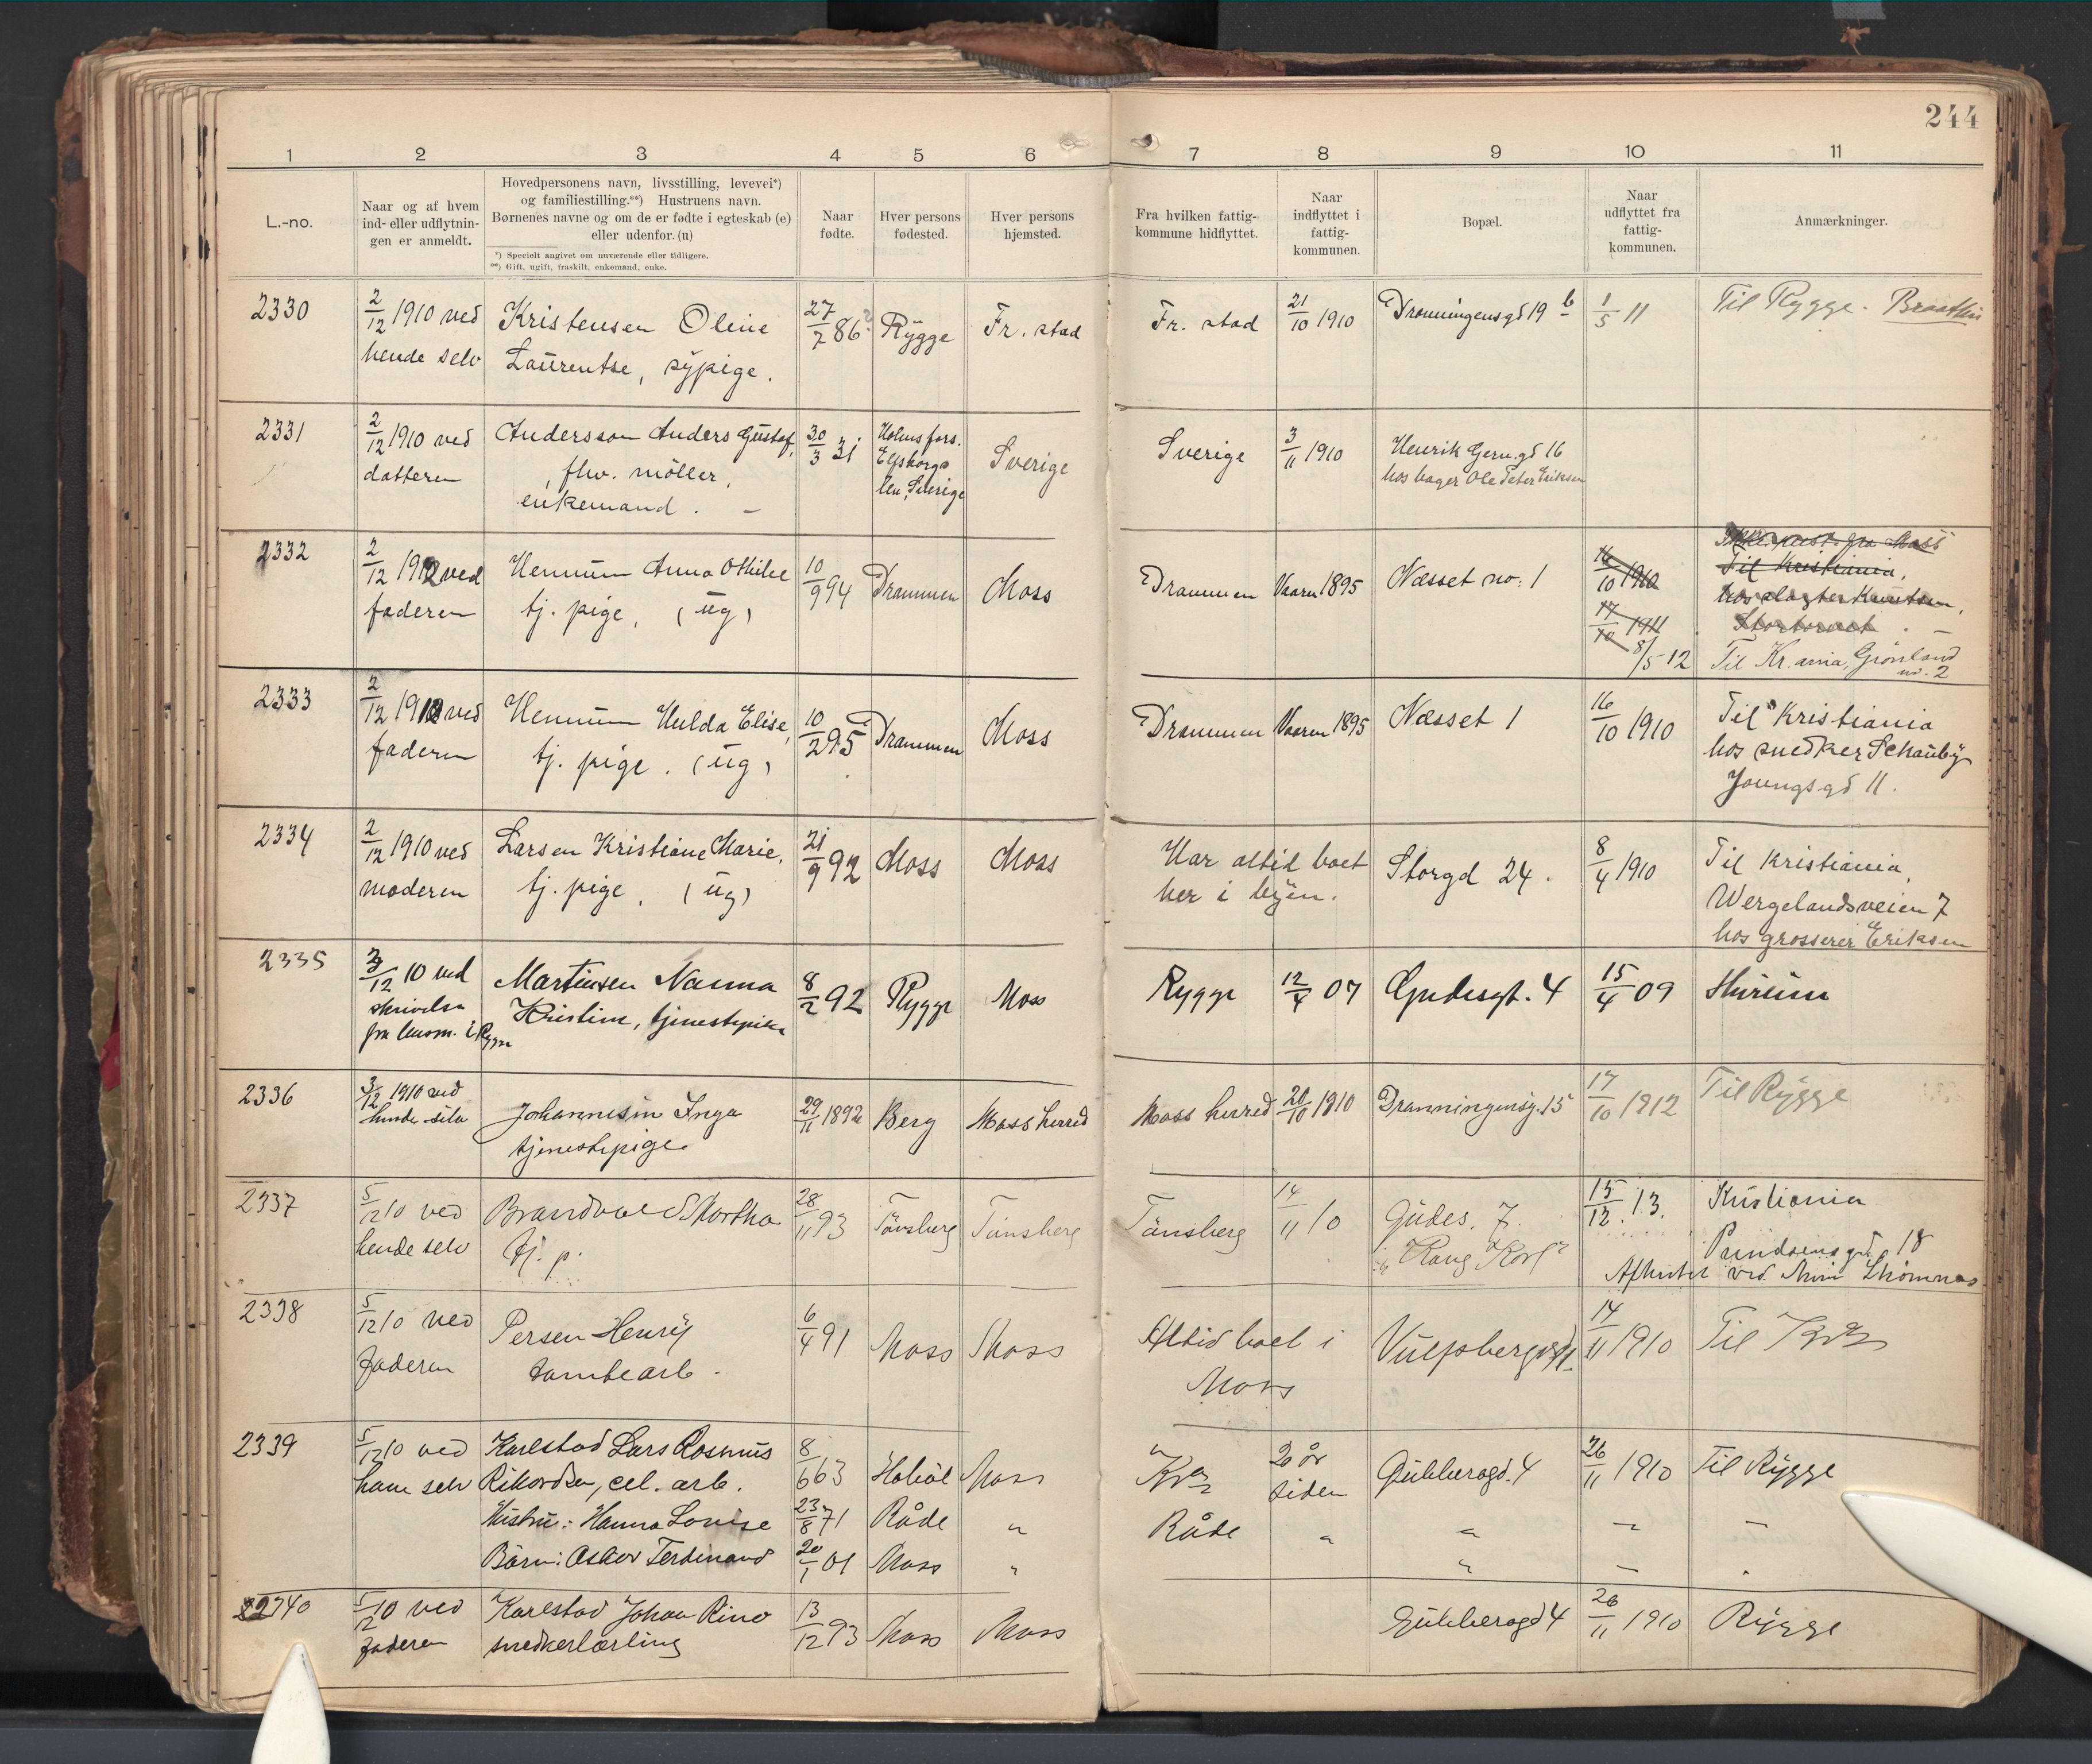 244
1 2 3 4 5 6 7 8 9 10 11
L.-no.
Naar og af hvem
ind- eller udflytnin-
gen er anmeldt.
Hovedpersonens navn, livsstilling, levevei*)
og familiestilling.**) Hustruens navn.
Børnenes navne og om de er fødte i egteskab (e)
eller udenfor. (u)
*) Specielt angivet om nuværende eller tidligere.
**) Gift, ugift, fraskilt, enkemand, enke.
Naar
fødte.
Hver persons
fødested.
Hver persons
hjemsted.
Fra hvilken fattig-
kommune hidflyttet.
Naar
indflyttet i
fattig-
kommunen.
Bopæl.
Naar
udflyttet fra
fattig-
kommunen.
Anmærkninger.
2330
2/12 1910 ved
hende selv
Kristensen Oline
Laurentse, sypige.
27/7 86
Rygge
Fr. stad
Fr. stad
21/10 1910
Dronningensgd 19 b
1/5 11
Til Rygge.
2331
2/12 1910 ved
datteren
Andersson Anders Gustaf,
fhv. möller,
enkemand. -
30/3 31
Holmsfors.
Elfsborgs
len, Sverige
Sverige
Sverige
3/11 1910
Henrik Gern.gd 16
hos bager Ole Peter Eriksen
2332
2/12 1910 ved
faderen
Hennum Anna Othilie
tj. pige, (ug)
10/9 94
Drammen
Moss
Drammen
Vaaren 1895
Næsset no: 1
16/10 1910
17/10 1911
8/5 12
Til Kristiania,
hos slagter Knutsen,
Stortorvet. -
Til Kr.ania, Grønland
no. 2
2333
2/12 1910 ved
faderen
Hennum Hulda Elise,
tj. pige. (ug)
10/2 95
Drammen
Moss
Drammen
Vaaren 1895
Næsset 1
16/10 1910
Til Kristiania
hos snedker Schauby
Youngsgd 11.
2334
2/12 1910 ved
moderen
Larsen Kristiane Marie,
tj. pige, (ug)
21/9 92
Moss
Moss
Har altid boet
her i byen.
Storgd 24.
8/4 1910
Til Kristiania,
Wergelandsveien 7
hos grosserer Eriksen
2335
3/12 10 ved
skrivelse
fra lensm. i Rygge
Martinsen Nanna
Kristine, tjenestepike
8/2 92
Rygge
Moss
Rygge
12/4 07
Gudesgt. 4
15/4 09
Hurum
2336
3/12 1910 ved
hende selv
Johannesen Inga
tjenestepige
29/11 1892
Berg
Moss herred
Moss herred
20/10 1910
Dronningensg. 15
17/10 1912
Til Rygge
2337
5/12 10 ved
hende selv
Brandvold Martha
tj. p.
28/11 93
Tönsberg
Tönsberg
Tönsberg
14/11 10
Gudes. 7.
"Kong Karl"
15/12. 13.
Kristiania
18
2338
5/12 10 ved
faderen
Persen Henry
tomtearb.
6/4 91
Moss
Moss
Altid boet i
Moss
14/11 1910
Til Kra
2339
5/12 10 ved
ham selv
Karlstad Lars Rasmus
Rikardsen, cel. arb.
8/6 63
Hobøl
Moss
Kra
20 år
siden
Gubberogd. 4
26/11 1910
Til Rygge
Hustru: Hanna Lovise
23/8 71
Råde
"
Råde
"
"
—
—
Børn: Oskar Ferdinand
20/1 01
Moss
"
"
—
2340
5/12 10 ved
faderen
Karlstad Johan Rino
snedkerlærling
13/12 93
Moss
Moss
Gubberogd 4
26/11 1910
Rygge